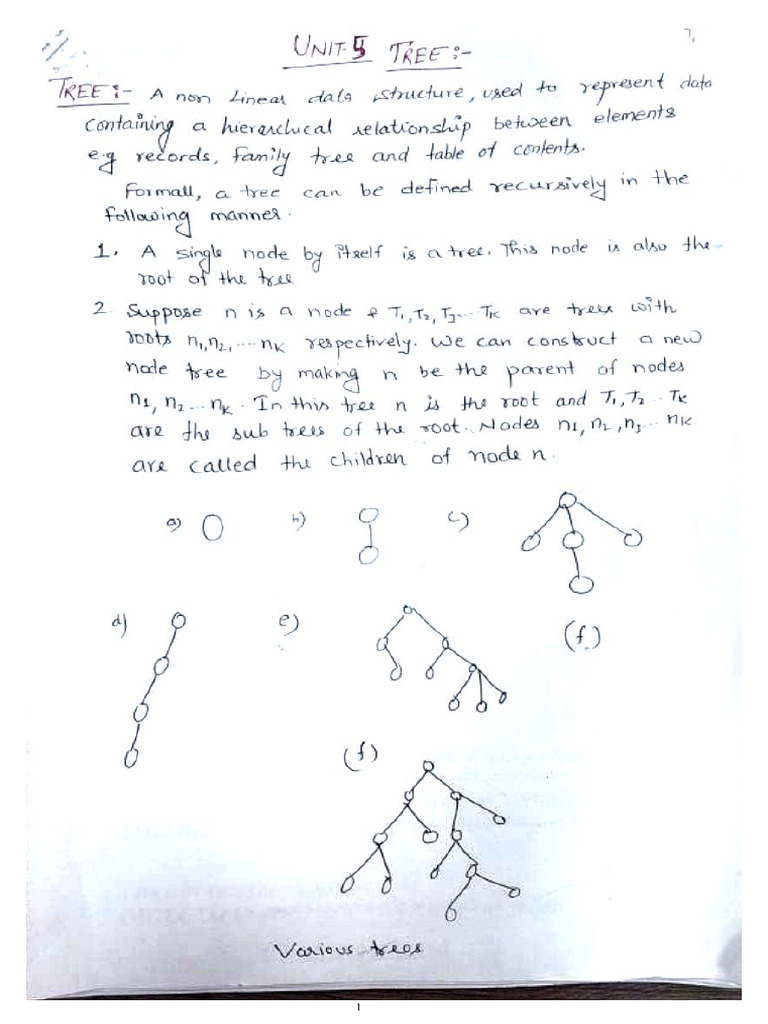 UNIT-5 TREE:-
TREE:- A non Linear data structure, used to represent data
containing a hierarchical relationship between elements
e.g records, family tree and table of contents.
Formall, a tree can be defined recursively in the
following manner.
1. A single node by itself is a tree. This node is also the
root of the tree
2. Suppose n is a node & T1, T2, T3... TK are trees with
roots n1, n2, .... nK respectively. We can construct a new
node tree by making n be the parent of nodes
n1, n2 ... nK. In this tree n is the root and T1, T2 .. TK
are the sub trees of the root. Nodes n1, n2, n3... nK
are called the children of node n.
a) b) c)
d) e) (f)
(f)
Various trees
1